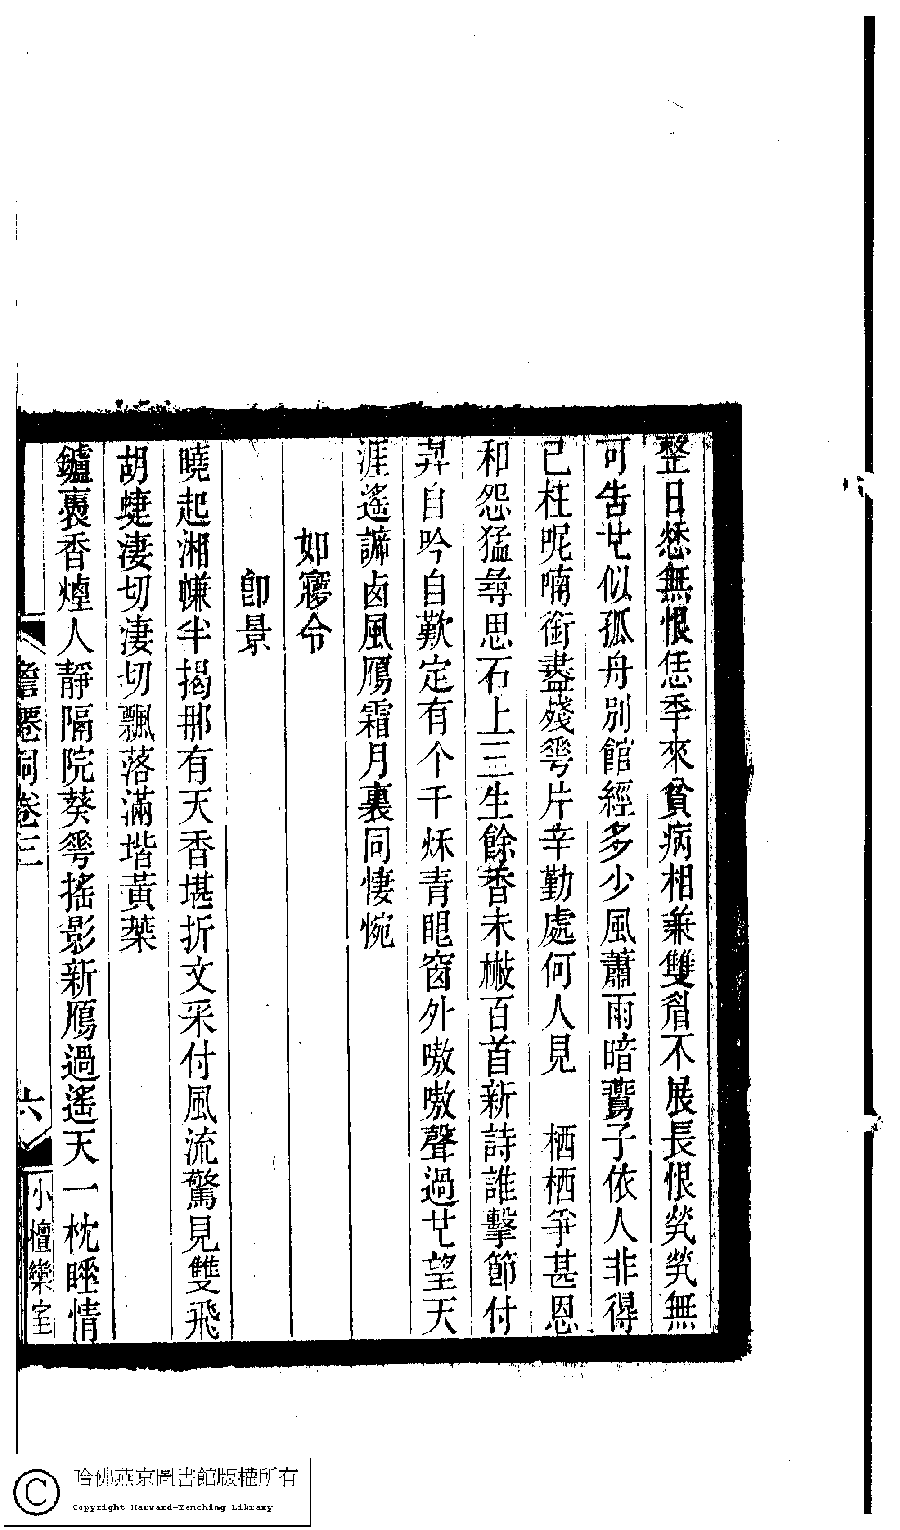 整日愁無恨恁季來貧病相兼雙眉不展長恨煢煢無
可告廿似孤舟別館經多少風蕭雨暗鷰子依人非得
已枉呢喃銜盡殘蕚片辛勤處何人見　栖栖爭甚恩
和怨猛尋思石上三生餘香未㯭百首新詩誰擊節付
弄自吟自歎定有个千秌青眼窗外嗷嗷聲過廿望天
涯遙諦鹵風鴈霜月裏同悽惋
如寱令
卽景
曉起湘㡘半揭那有天香堪折文采付風流驚見雙飛
胡蜨淒切淒切飄落滿堦黃葉
鑪裛香煙人靜隔院葵蕚搖影新鴈過遙天一枕睡情
卷三
六
小檀欒室
哈佛燕京圖書館版權所有
Copyright Harvard-Yenching Library